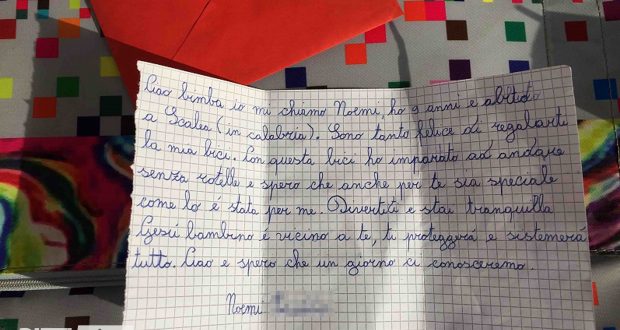 Ciao bimba io mi chiamo Noemi, ho 9 anni e abito
a Scalea (in calabria). Sono tanto felice di regalarti
la mia bici. Con questa bici ho imparato ad andare
senza rotelle e spero che anche per te sia speciale
come lo é stata per me. Divertiti e stai tranquilla
Gesú bambino é vicino a te, ti proteggerá e sistemerá
tutto. Ciao e spero che un giorno ci conosceremo.
Noemi